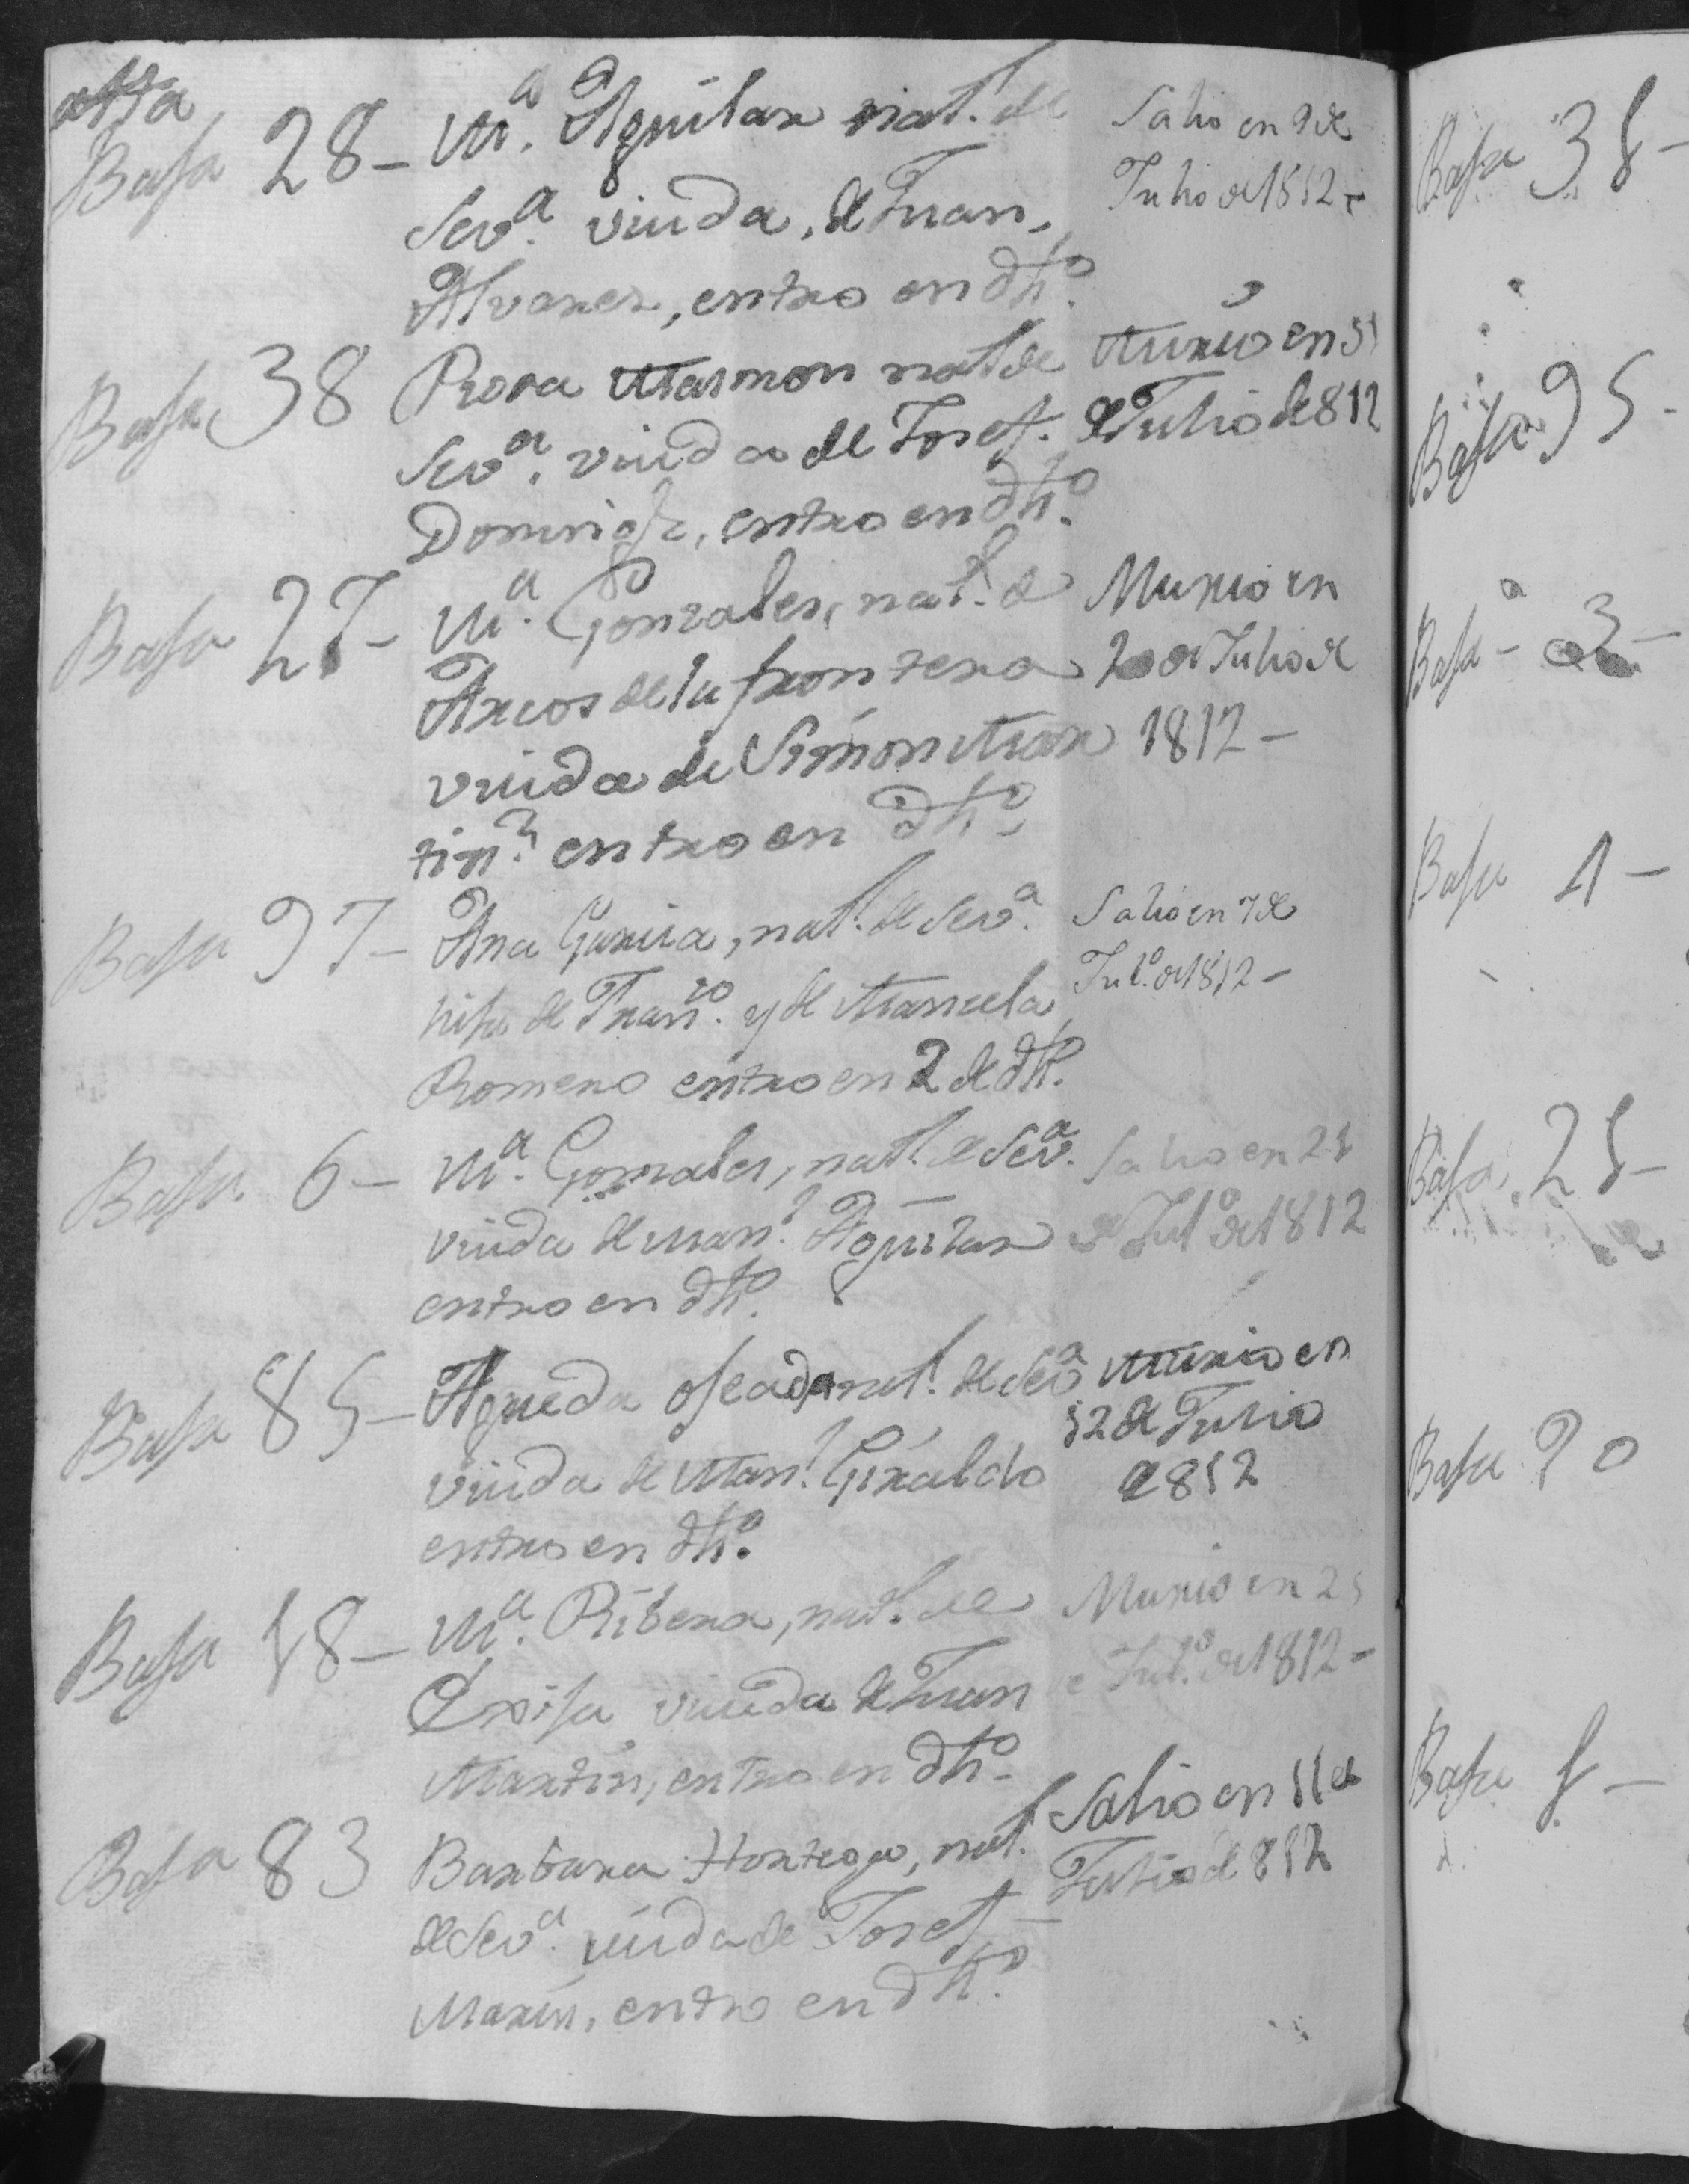 Baja 28- Mª. Aguilar nat.l de
Sevª. viuda, de Juan
Alvares, entro en dhº.
Salio en 9 de
Julio de 1812-
Baja 38 Rosa Marmon nat de
Sevª. viuda de Josef
Doming.z, entro en dhº.
Murio en 31
de Julio de 812
Baja 27- Mª. Gonzales, nat.l de
Arcos de la frontera
viuda de Simon Mar
tin.z entro en dhº.
Murio en
20 de Julio de
1812-
Baja 97- Ana Garcia, nat.l de Sevª.
hija de Franco. y de Manuela
Romero entro en 2 de dhº.
Salio en 7 de
Julº. de 1812-
Baja 6- Mª. Gonzales, nat.l de Sevª.
viuda de Man.l Aguilar
entro en dhº.
Salio en 21
de Julº de 1812
Baja 85- Agueda nat.l de Sevª
viuda de Man.l Giraldo
entro en dhº.
Murio en
12 de Julio
1812
Baja 18- Mª. Ribera, nat.l de
Ecija viuda de Juan
Martin, entro en dhº-
Murio en 21
e Julº. de 1812-
Baja 83 Barbara Hortega, nat.l
de Sevª. viuda de Josef
Marin, entro en dhº.
Salio en 11 de
Julio de 812
Baja 38-
Baja 95-
Baja - 3-
Baja 1-
Baja 21-
Baja 90
Baja